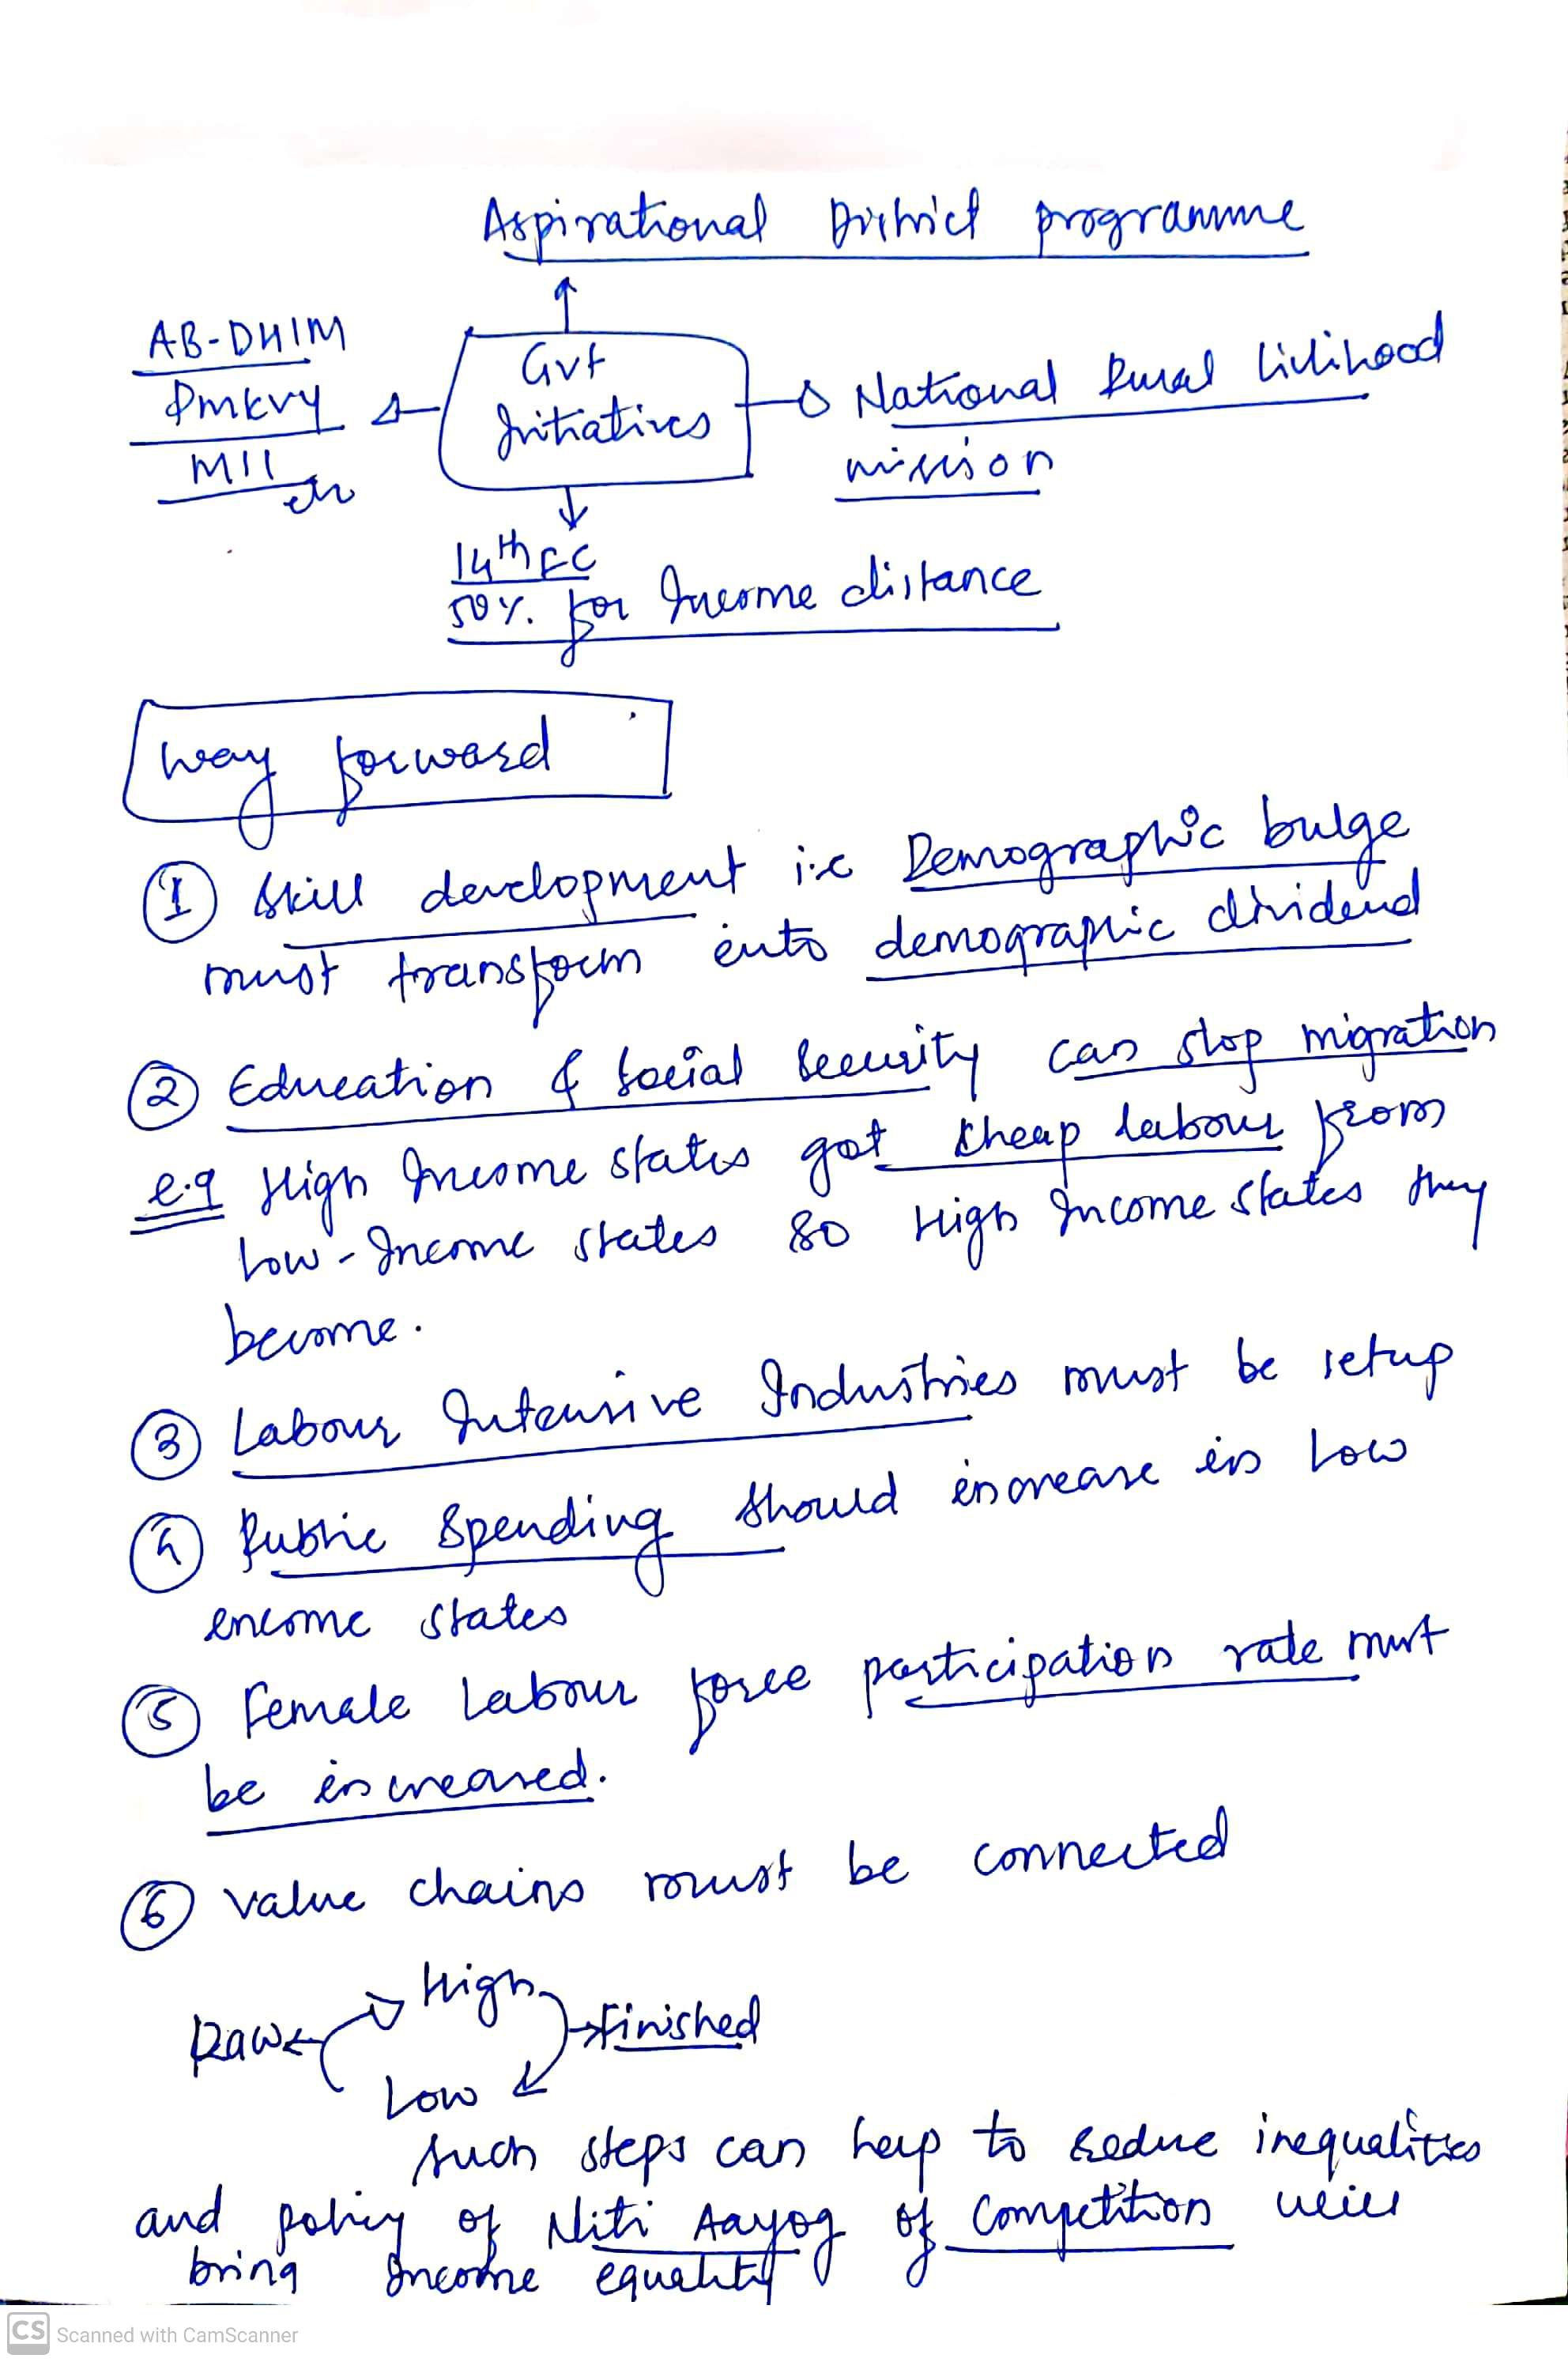 Aspirational District programme
AB-DHIM
Pmkvy
MII
etc
Gvt
Initiatives
National Rural livlihood
mission
14th FC
50% for Income distance
Way forward
① Skill development i.e Demographic bulge
must transform into demographic dividend
② Education & Social Security can stop migration
e.g High Income states got cheap labour from
low-Income states so High Income states they
become.
③ Labour Intensive Industries must be setup
④ Public Spending should increase in low
income states
⑤ Female Labour force participation rate must
be increased.
⑥ value chains must be connected
High
Raw
Finished
Low
such steps can help to reduce inequalities
and policy of Niti Aayog of Competition will
bring Income equality
CS Scanned with CamScanner